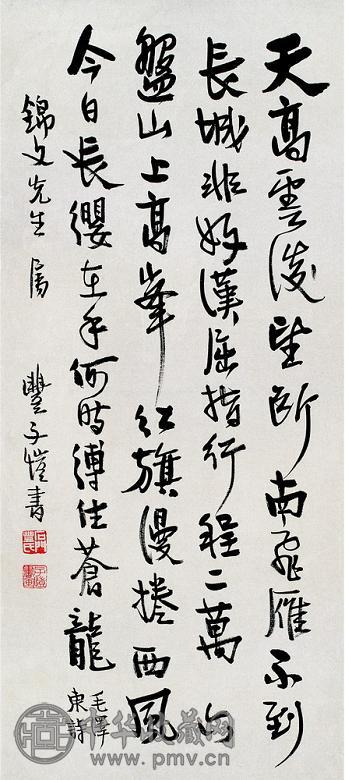 天高雲淡望断南飛雁不到
長城非好漢屈指行程二萬六
盤山上高峯红旗漫捲西風
今日長纓在手何時縛住蒼龍
毛澤
東詩
錦文先生屬
豐子愷書
石門豐氏
中华收藏网
www.pmv.cn